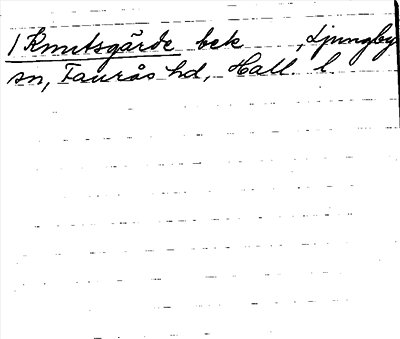 / Knutsgärde bek , Ljungby
sn, Faurås hd, Hall. l.